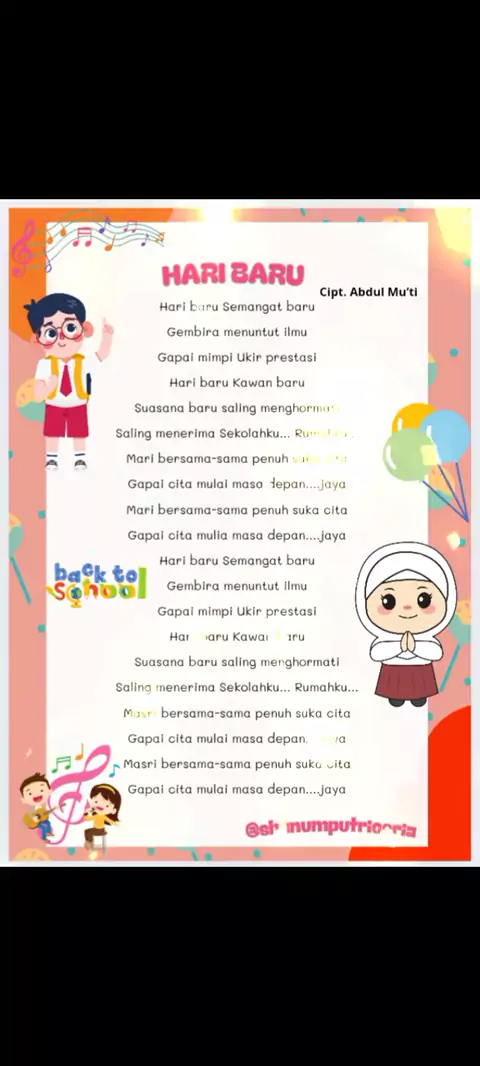 HARI BARU
Cipt. Abdul Mu'ti
Hari baru Semangat baru
Gembira menuntut ilmu
Gapai mimpi Ukir prestasi
Hari baru Kawan baru
Suasana baru saling menghormati
Saling menerima Sekolahku...
Mari bersama-sama penuh suka cita
Gapai cita mulai masa depan....jaya
Mari bersama-sama penuh suka cita
Gapai cita mulia masa depan....jaya
back to
school
Hari baru Semangat baru
Gembira menuntut ilmu
Gapai mimpi Ukir prestasi
Hari baru Kawan baru
Suasana baru saling menghormati
Saling menerima Sekolahku... Rumahku...
Masri bersama-sama penuh suka cita
Gapai cita mulai masa depan
Masri bersama-sama penuh suka cita
Gapai cita mulai masa depan....jaya